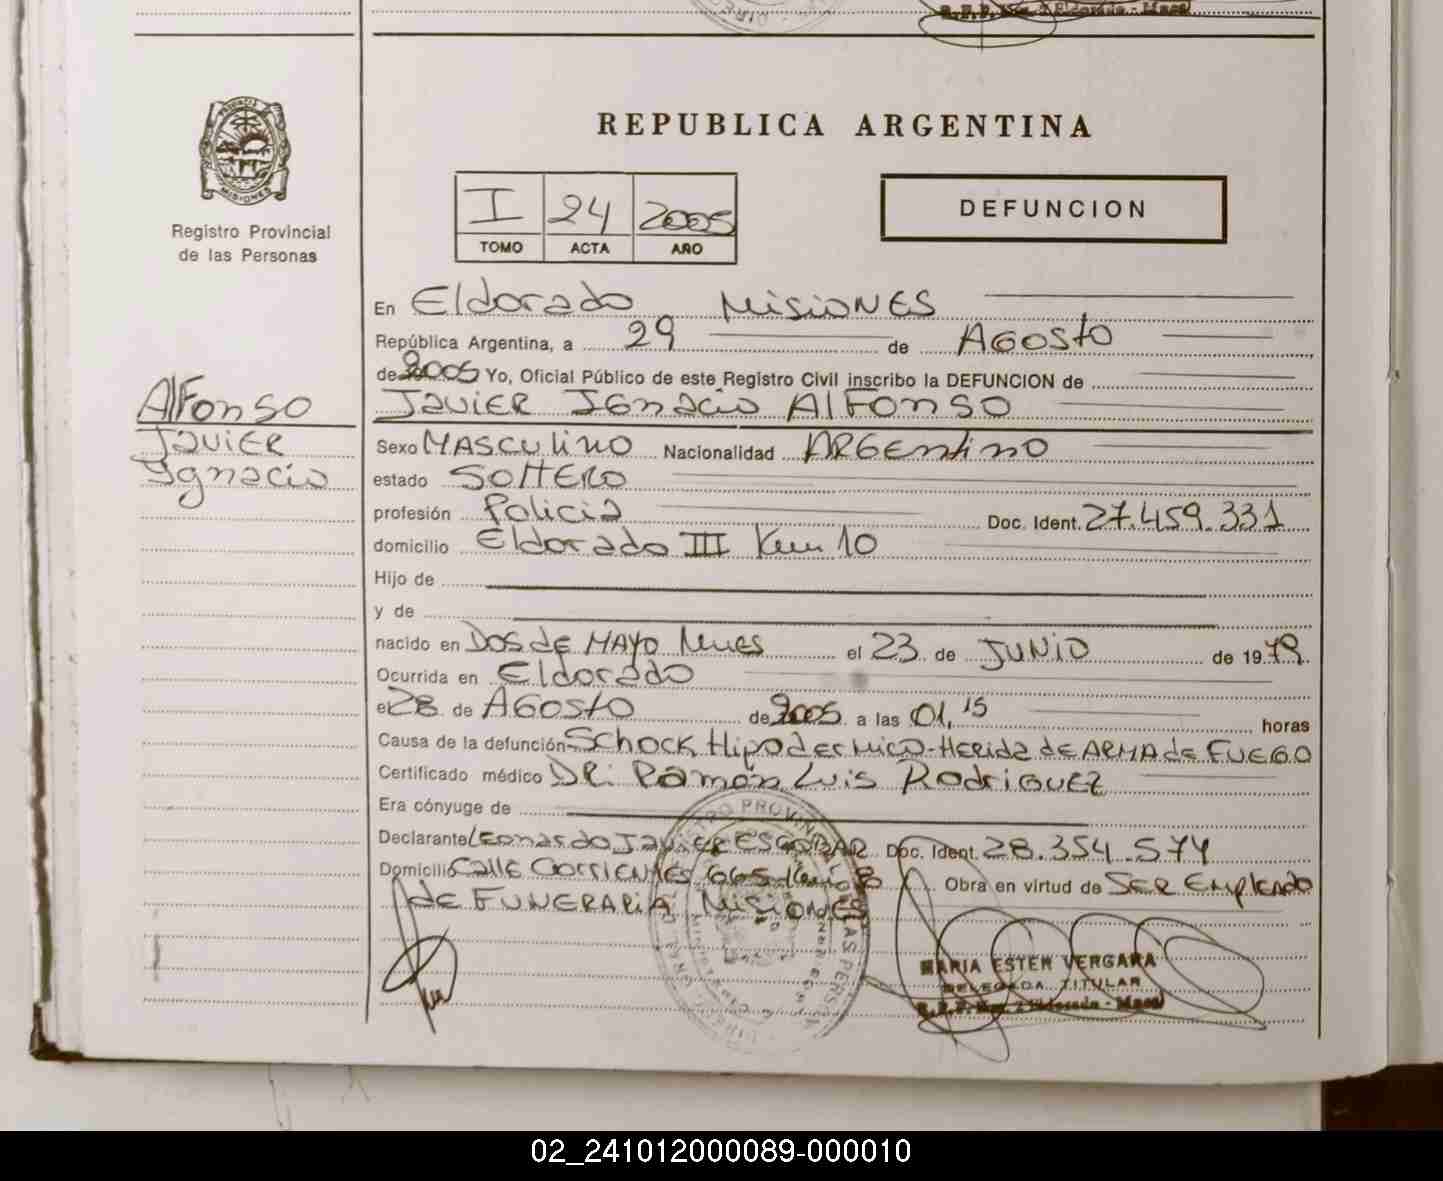 PROVINCIA
MISIONES
Registro Provincial
de las Personas
REPUBLICA ARGENTINA
I 24 2005
TOMO ACTA AÑO
DEFUNCION
Alfonso
Javier
Ignacio
En Eldorado Misiones
República Argentina, a 29 de Agosto
de 2005 Yo, Oficial Público de este Registro Civil inscribo la DEFUNCION de
Javier Ignacio Alfonso
Sexo Masculino Nacionalidad Argentino
estado Soltero
profesión Policia Doc. Ident. 27.459.331
domicilio Eldorado III Km 10
Hijo de
y de
nacido en Dos de Mayo Mnes el 23 de Junio de 1979
Ocurrida en Eldorado
el 28 de Agosto de 2005 a las 01,15 horas
Causa de la defunción Schock Hipodermico-Herida de Arma de Fuego
Certificado médico Dr. Ramón Luis Rodriguez
Era cónyuge de
Declarante Leonardo Javier ESCOBAR Doc. Ident. 28.354.574
Domicilio Calle Corrientes 665 Km 8 Obra en virtud de Ser Empleado
de Funeraria Misiones
MARIA ESTER VERGARA
DELEGADA TITULAR
02_241012000089-000010